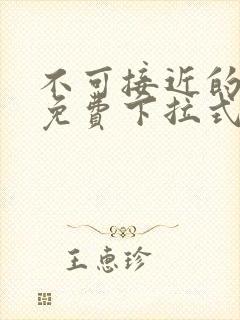 不可接近的
免费下拉式
王惠珍